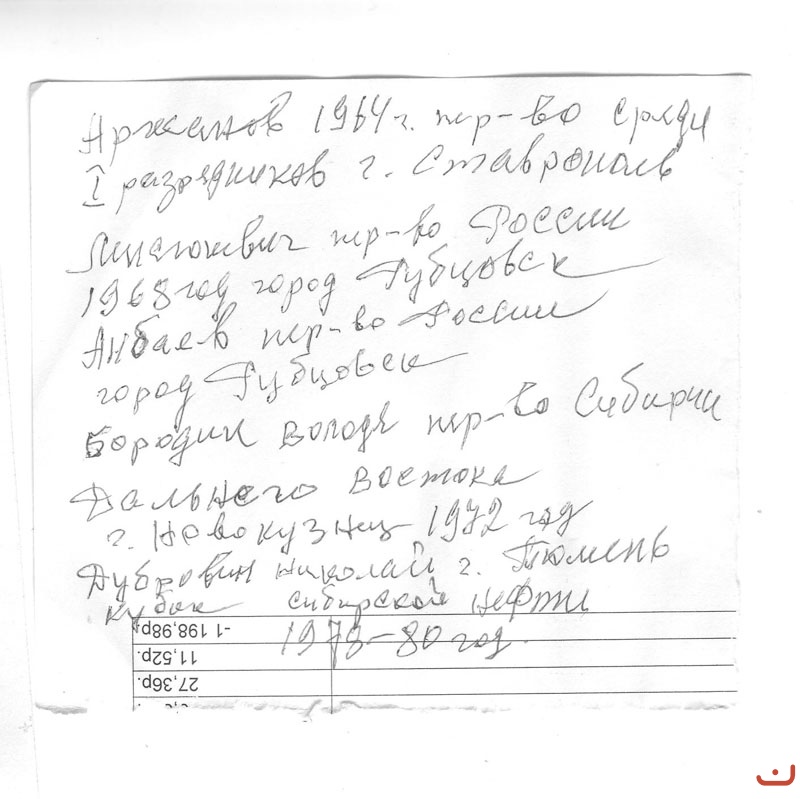 Аржанов 1964 г. пер-во среди
I разрядников г. Ставрополь
пер-во России
1968 год город Рубцовск
Анбаев пер-во России
город Рубцовск
Бородин Володя пер-во Сибири
Дальнего Востока
г. Новокузнец 1972 год
Дубровин Николай г. Тюмень
кубок сибирской нефти
-1 198,98р.
1978-80 год.
11,52р.
27,36р.